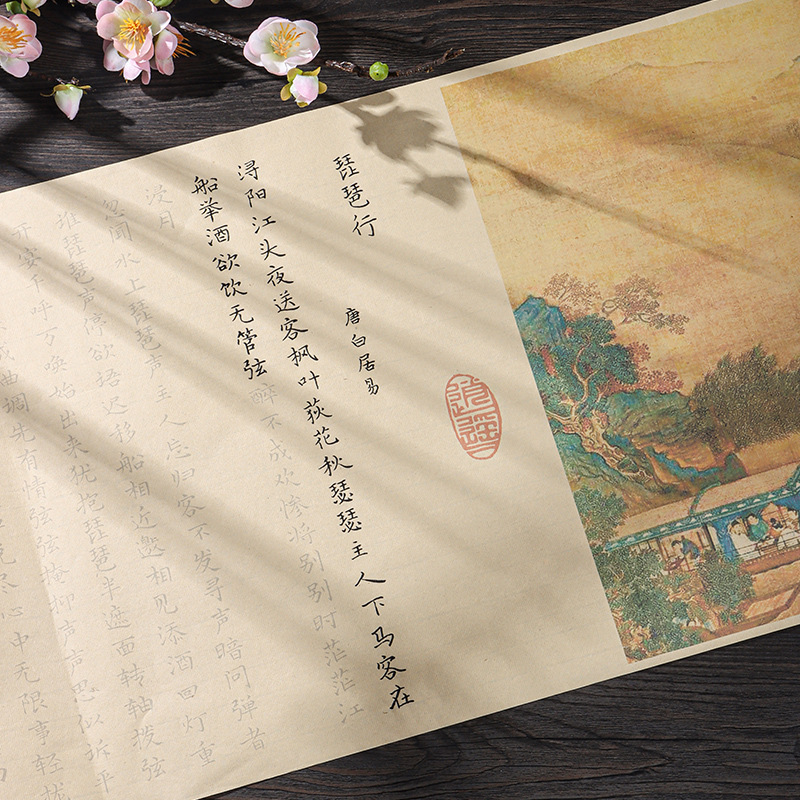 琵琶行
唐白居易
逍遥
浔阳江头夜送客枫叶荻花秋瑟瑟主人下马客在
船举酒欲饮无管弦醉不成欢惨将别别时茫茫江
浸月
忽闻水上琵琶声主人忘归客不发寻声暗问弹者
谁琵琶声停欲语迟移船相近邀相见添酒回灯重
开宴千呼万唤始出来犹抱琵琶半遮面转轴拨弦
成曲调先有情弦弦掩抑声声思似诉平
尽心中无限事轻拢